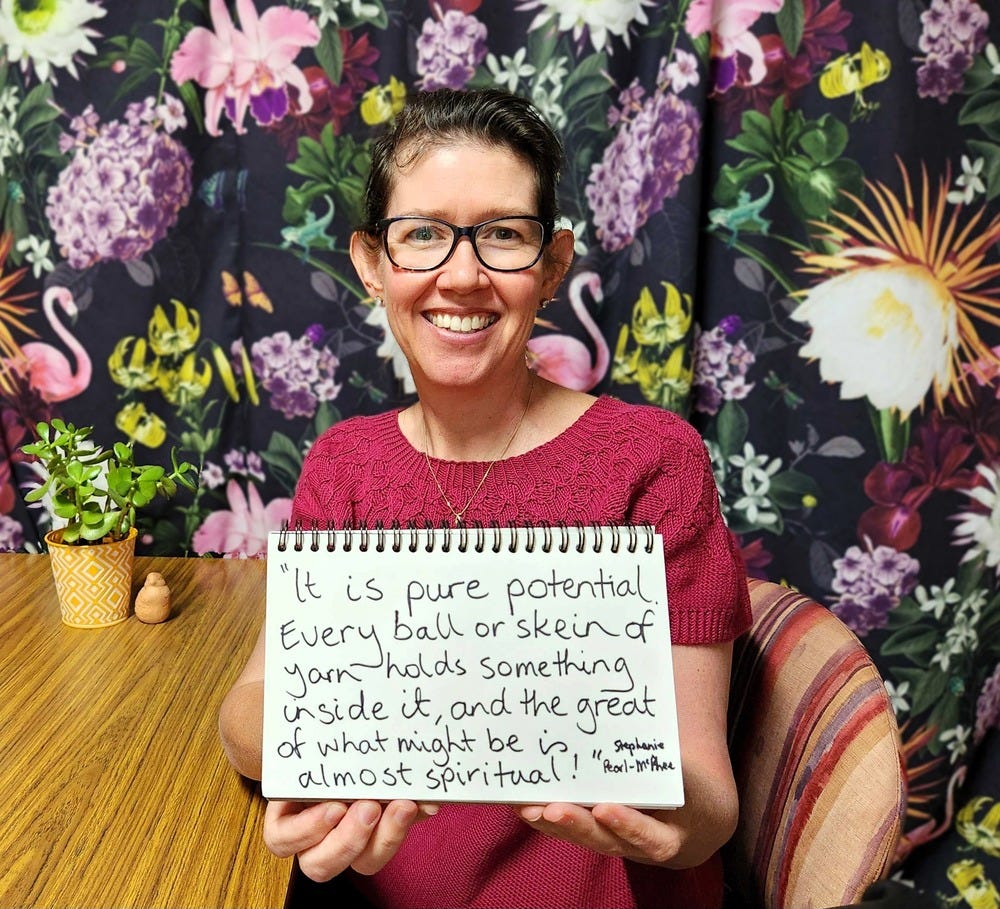 "It is pure potential.
Every ball or skein of
yarn holds something
inside it, and the great
of what might be is
almost spiritual!"
Stephanie
Pearl-McPhee